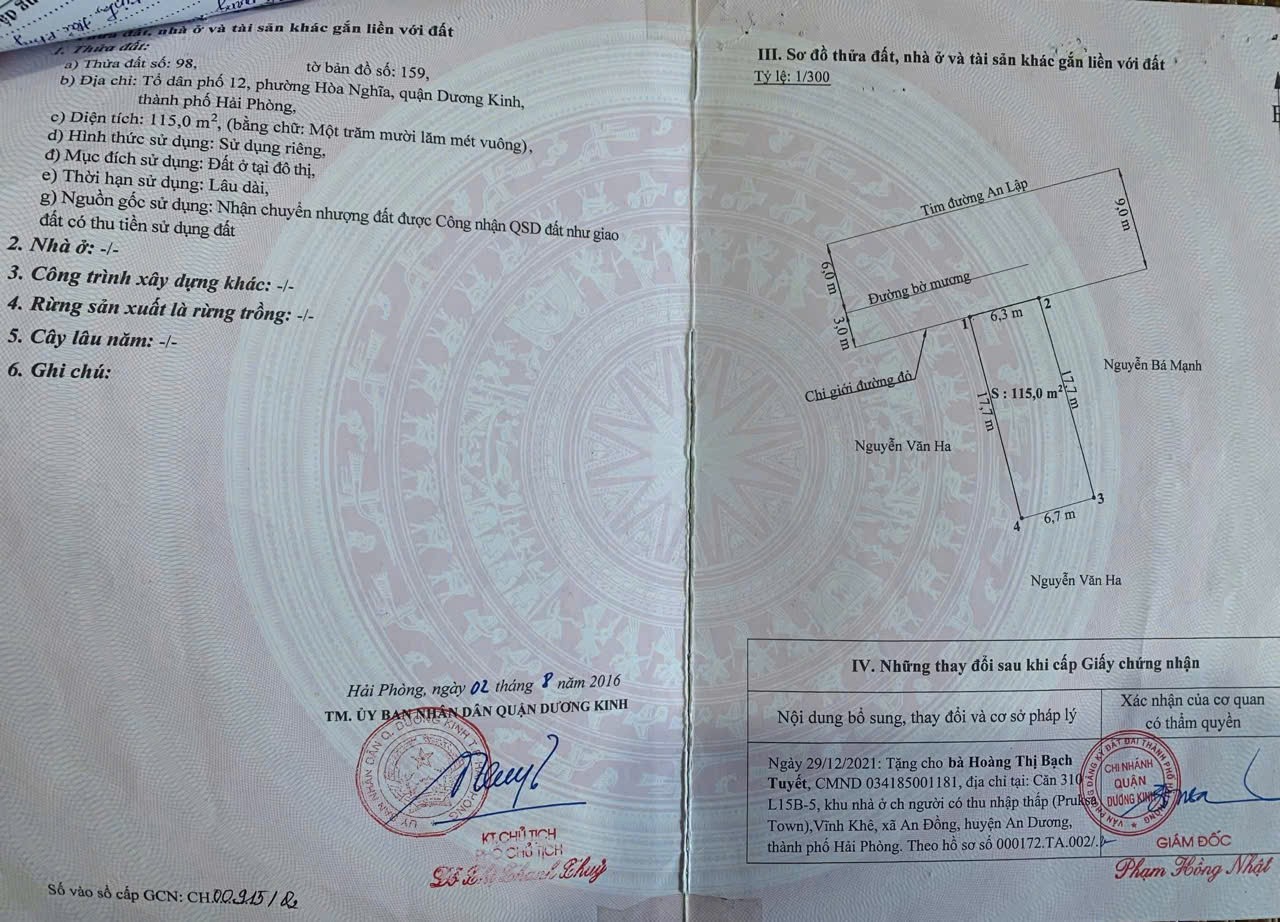 đất, nhà ở và tài sản khác gắn liền với đất
1. Thửa đất:
a) Thửa đất số: 98, tờ bản đồ số: 159,
b) Địa chỉ: Tổ dân phố 12, phường Hòa Nghĩa, quận Dương Kinh,
thành phố Hải Phòng,
c) Diện tích: 115,0 m², (bằng chữ: Một trăm mười lăm mét vuông),
d) Hình thức sử dụng: Sử dụng riêng,
đ) Mục đích sử dụng: Đất ở tại đô thị,
e) Thời hạn sử dụng: Lâu dài,
g) Nguồn gốc sử dụng: Nhận chuyển nhượng đất được Công nhận QSD đất như giao
đất có thu tiền sử dụng đất
2. Nhà ở: -/-
3. Công trình xây dựng khác: -/-
4. Rừng sản xuất là rừng trồng: -/-
5. Cây lâu năm: -/-
6. Ghi chú:
Hải Phòng, ngày 02 tháng 8 năm 2016
TM. ỦY BAN NHÂN DÂN QUẬN DƯƠNG KINH
KT.CHỦ TỊCH
PHÓ CHỦ TỊCH
Số vào sổ cấp GCN: CH.00915/
III. Sơ đồ thửa đất, nhà ở và tài sản khác gắn liền với đất
Tỷ lệ: 1/300
Tim đường An Lập
9,0 m
6,0 m
Đường bờ mương
3,0 m
1
6,3 m
2
Chỉ giới đường đỏ
Nguyễn Bá Mạnh
17,7 m
S : 115,0 m²
17,7 m
Nguyễn Văn Ha
3
4
6,7 m
Nguyễn Văn Ha
IV. Những thay đổi sau khi cấp Giấy chứng nhận
Nội dung bổ sung, thay đổi và cơ sở pháp lý
Xác nhận của cơ quan
có thẩm quyền
Ngày 29/12/2021: Tặng cho bà Hoàng Thị Bạch
Tuyết, CMND 034185001181, địa chỉ tại: Căn 310
L15B-5, khu nhà ở ch người có thu nhập thấp (Pruksa
Town),Vĩnh Khê, xã An Đồng, huyện An Dương,
thành phố Hải Phòng. Theo hồ sơ số 000172.TA.002/.
VĂN PHÒNG ĐĂNG KÝ ĐẤT ĐAI THÀNH PHỐ HẢI PHÒNG
CHI NHÁNH
QUẬN
DƯƠNG KINH
GIÁM ĐỐC
Phạm Hồng Nhật